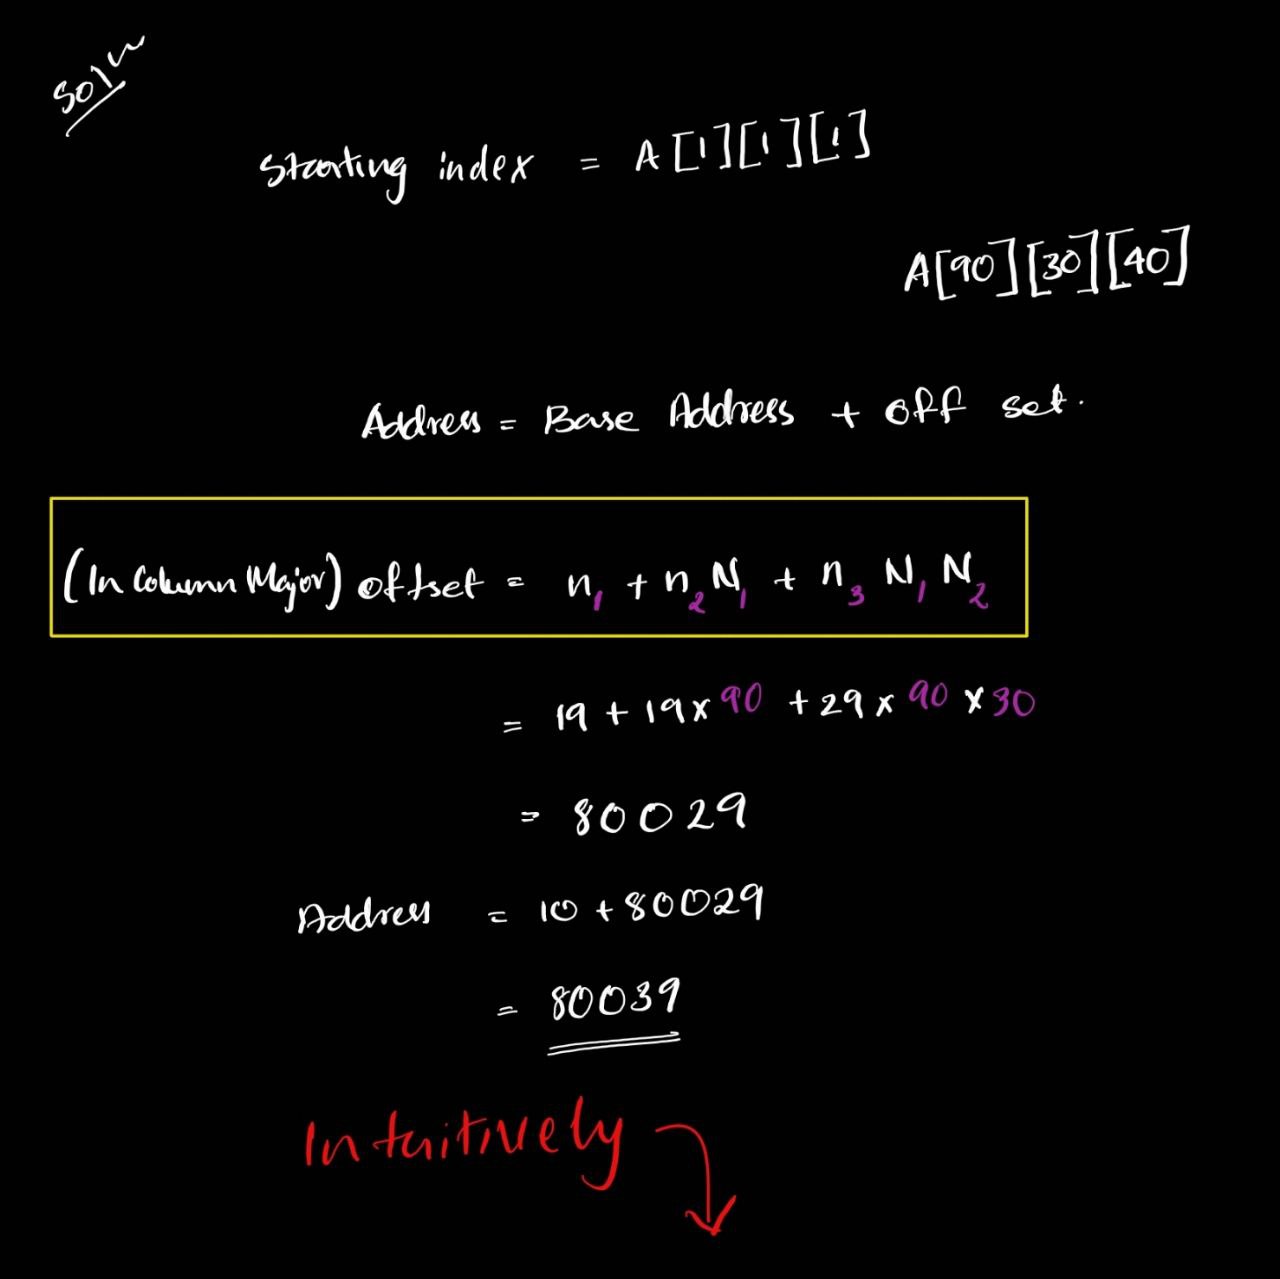 Soln
Starting index = A[1][1][1]
A[90][30][40]
Address = Base Address + Off set.
(In Column Major) offset = n₁ + n₂N₁ + n₃ N₁ N₂
= 19 + 19x 90 + 29 x 90 x 30
= 80029
Address = 10 + 80029
= 80039
Intuitively